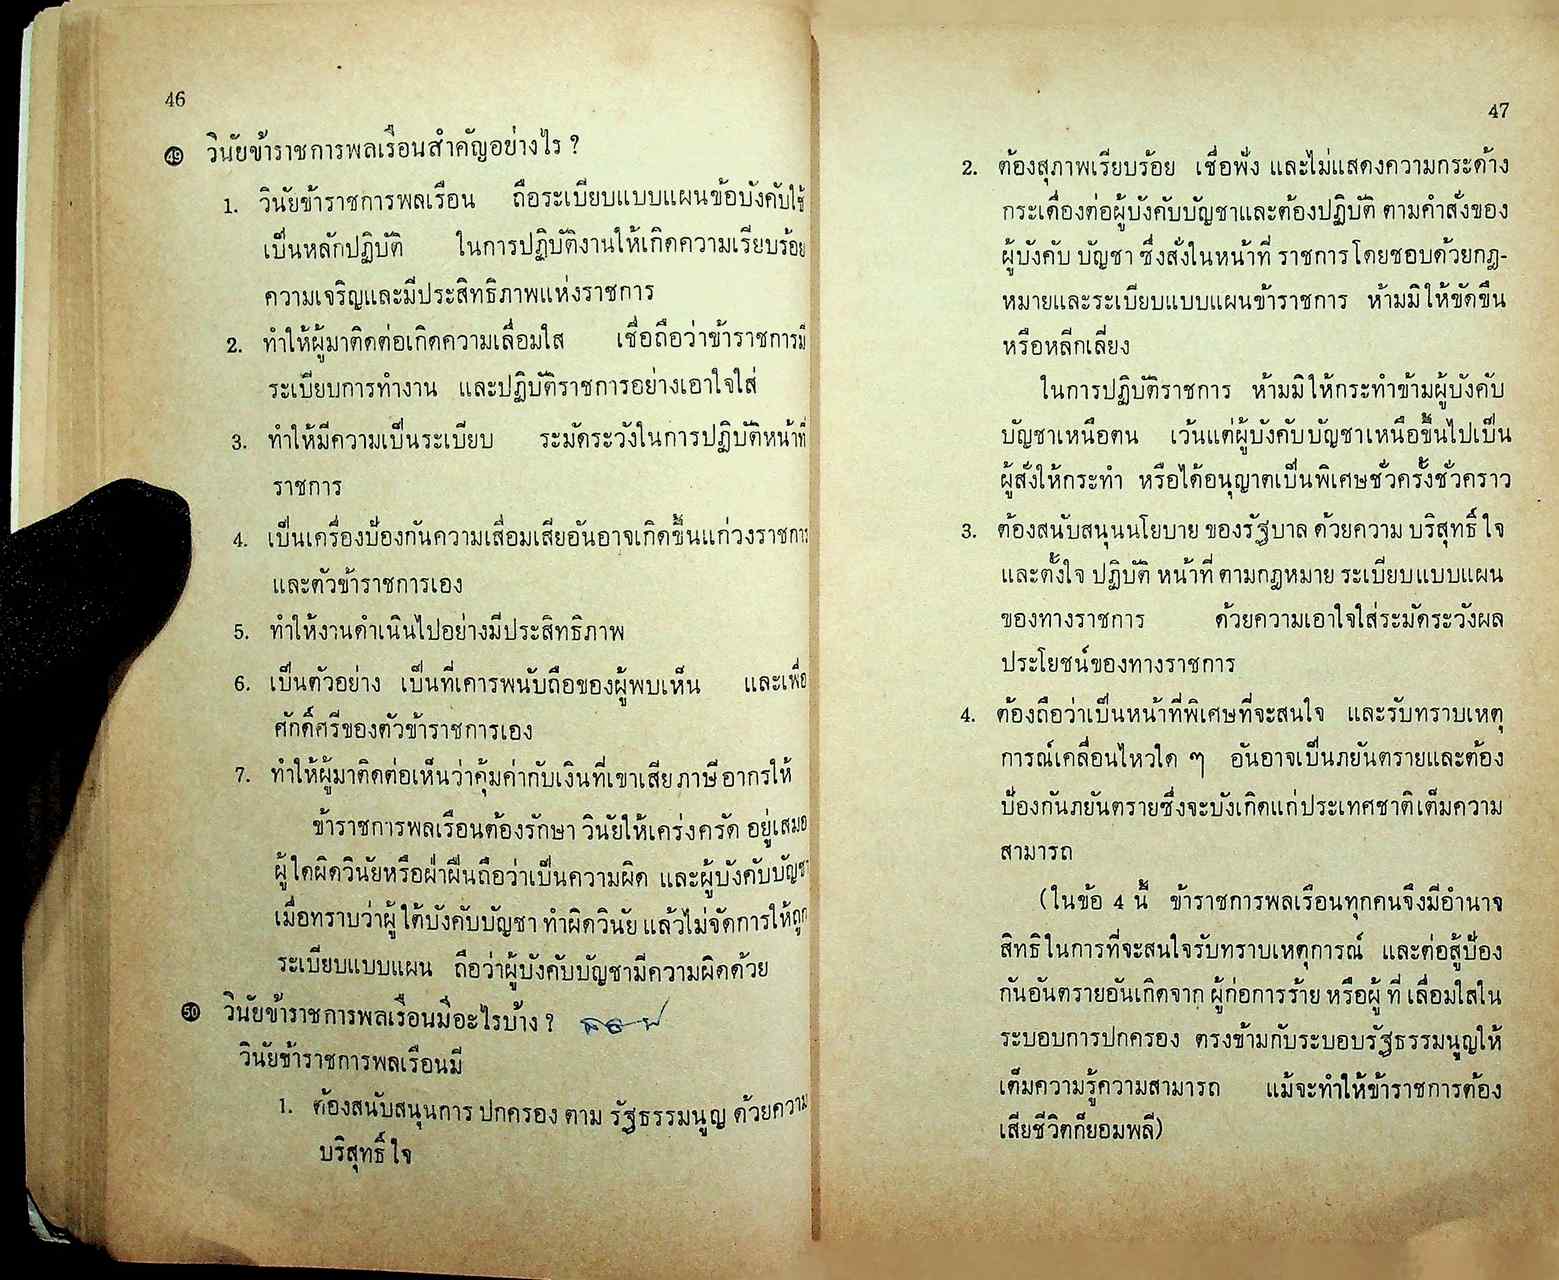 46
49 วินัยข้าราชการพลเรือนสำคัญอย่างไร ?
1. วินัยข้าราชการพลเรือน ถือระเบียบแบบแผนข้อบังคับใช้
เป็นหลักปฏิบัติ ในการปฏิบัติงานให้เกิดความเรียบร้อย
ความเจริญและมีประสิทธิภาพแห่งราชการ
2. ทำให้ผู้มาติดต่อเกิดความเลื่อมใส เชื่อถือว่าข้าราชการมี
ระเบียบการทำงาน และปฏิบัติราชการอย่างเอาใจใส่
3. ทำให้มีความเป็นระเบียบ ระมัดระวังในการปฏิบัติหน้าที่
ราชการ
4. เป็นเครื่องป้องกันความเสื่อมเสียอันอาจเกิดขึ้นแก่วงราชการ
และตัวข้าราชการเอง
5. ทำให้งานดำเนินไปอย่างมีประสิทธิภาพ
6. เป็นตัวอย่าง เป็นที่เคารพนับถือของผู้พบเห็น และเพื่อ
ศักดิ์ศรีของตัวข้าราชการเอง
7. ทำให้ผู้มาติดต่อเห็นว่าคุ้มค่ากับเงินที่เขาเสียภาษีอากรให้
ข้าราชการพลเรือนต้องรักษา วินัยให้เคร่งครัด อยู่เสมอ
ผู้ใดผิดวินัยหรือฝ่าฝืนถือว่าเป็นความผิด และผู้บังคับบัญชา
เมื่อทราบว่าผู้ใต้บังคับบัญชา ทำผิดวินัย แล้วไม่จัดการให้ถูก
ระเบียบแบบแผน ถือว่าผู้บังคับบัญชามีความผิดด้วย
50 วินัยข้าราชการพลเรือนมีอะไรบ้าง ?
วินัยข้าราชการพลเรือนมี
1. ต้องสนับสนุนการ ปกครอง ตาม รัฐธรรมนูญ ด้วยความ
บริสุทธิ์ใจ
47
2. ต้องสุภาพเรียบร้อย เชื่อฟัง และไม่แสดงความกระด้าง
กระเดื่องต่อผู้บังคับบัญชาและต้องปฏิบัติ ตามคำสั่งของ
ผู้บังคับ บัญชา ซึ่งสั่งในหน้าที่ ราชการโดยชอบด้วยกฎ-
หมายและระเบียบแบบแผนข้าราชการ ห้ามมิให้ขัดขืน
หรือหลีกเลี่ยง
ในการปฏิบัติราชการ ห้ามมิให้กระทำข้ามผู้บังคับ
บัญชาเหนือตน เว้นแต่ผู้บังคับบัญชาเหนือขึ้นไปเป็น
ผู้สั่งให้กระทำ หรือได้อนุญาตเป็นพิเศษชั่วครั้งชั่วคราว
3. ต้องสนับสนุนนโยบาย ของรัฐบาล ด้วยความ บริสุทธิ์ ใจ
และตั้งใจ ปฏิบัติ หน้าที่ ตามกฎหมาย ระเบียบแบบแผน
ของทางราชการ ด้วยความเอาใจใส่ระมัดระวังผล
ประโยชน์ของทางราชการ
4. ต้องถือว่าเป็นหน้าที่พิเศษที่จะสนใจ และรับทราบเหตุ
การณ์เคลื่อนไหวใด ๆ อันอาจเป็นภยันตรายและต้อง
ป้องกันภยันตรายซึ่งจะบังเกิดแก่ประเทศชาติเต็มความ
สามารถ
(ในข้อ 4 นี้ ข้าราชการพลเรือนทุกคนจึงมีอำนาจ
สิทธิในการที่จะสนใจรับทราบเหตุการณ์ และต่อสู้ป้อง
กันอันตรายอันเกิดจาก ผู้ก่อการร้าย หรือผู้ ที่ เลื่อมใสใน
ระบอบการปกครอง ตรงข้ามกับระบอบรัฐธรรมนูญให้
เต็มความรู้ความสามารถ แม้จะทำให้ข้าราชการต้อง
เสียชีวิตก็ยอมพลี)